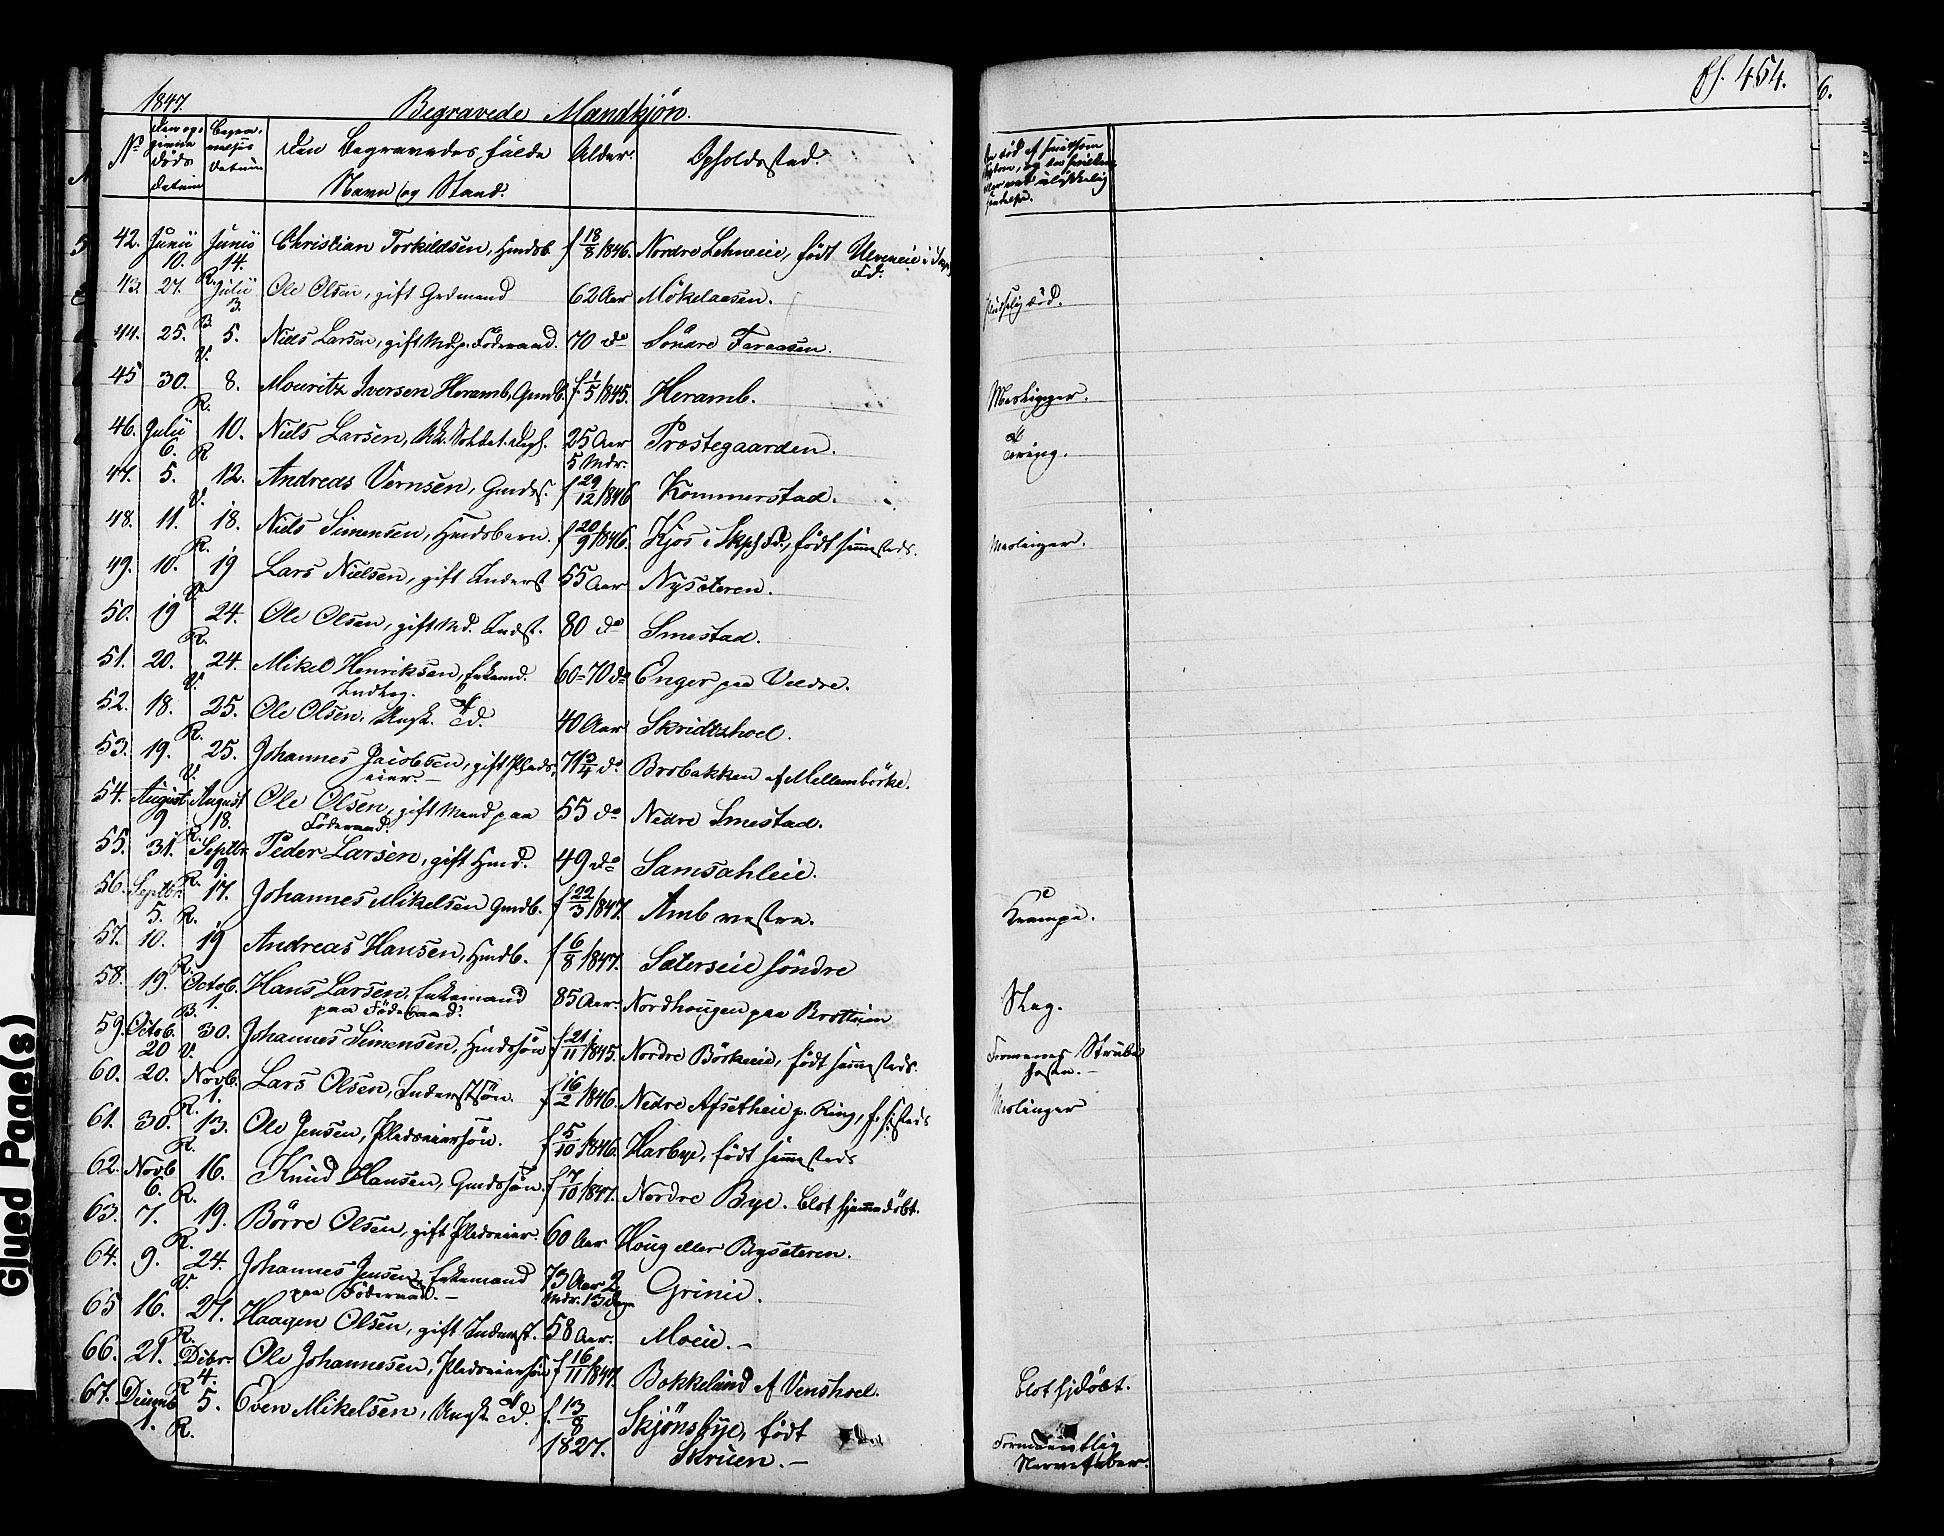 1847. Begravede Mandkjøn. 454.
No Den opgivne Døds Datum Begravelses Datum Den Begravedes fulde Navn og Stand. Alder. Opholdssted.
42. Junii 10. Junii 14. Christian Torkildsen, Hmdsb. f 18/8 1846. Nordre Lehneeie, født Ulveneie i
R.
43. 27. Julii 3. Ole Olsen, gift Grdmand 62 Aar Mökelaasen. død.
B.
44. 25. 5. Niels Larsen, gift Md. p. Föderaad. 70 do Söndre Faraasen.
V.
45 30. 8. Mouritz Iversen Heramb, Gmdb. f. 1/5 1845. Heramb. Meslinger.
R.
46. Julii 6. 10. Niels Larsen, Uk. Soldat. 25 Aar 5 Mdr. Præstegaarden. Tæring.
R
47. 5. 12. Andreas Vernsen, Gmdss. f 29/12 1846 Kommerstad.
V.
48. 11. 18. Niels Simensen, Hmdsbarn. f 20/9 1846. Kjos i født sammesteds. Meslinger.
R.
49. 10. 19 Lars Nielsen, gift Inderst 55 Aar Nyseteren.
V.
50. 19 24. Ole Olsen, gift Md. Indst. 80 do Smestad.
R.
51. 20. 24. Mikel Henriksen, Enkemd. 60-70 do Enger paa Veldre.
V.
52. 18. 25. Ole Olsen, Ungk. 40 Aar Skridtshoel.
R.
53. 19. 25. Johannes Jacobsen, gift Pladseier.- 71 3/4 do Brobakken af Mellembörke.
V.
54. August 9 August 18. Ole Olsen, gift Mand paa Föderaad. 55 do Nedre Smestad.
R.
55. 31. Septbr. 9. Peder Larsen, gift Hmd. 49 do Samsahleie.
R.
56. Septbr. 5. 17. Johannes Mikelsen Gmdb. f 22/3 1847. Amb vestre. Krampe.
R.
57. 10. 19 Andreas Hansen, Hmdb. f 6/8 1847. Sæterseie söndre
R.
58. 19. Octob. 1. Hans Larsen, Enkemand paa Föderaad. 85 Aar. Nordhougen paa Brottum Slag.
B.
59. Octob. 20 30. Johannes Simensen, Hmdssön f 21/11 1845. Nordre Börkeeie, født sammesteds. Formenes Strubehoste.-
V.
60. 20. Novb. 1. Lars Olsen, Inderstsön. f 16/2 1846. Nedre Afsetheie p. Ring, f. s.steds Meslinger
R.
61. 30. 13. Ole Jensen, Pladseiersön. f 5/10 1846. Harbye, født sammesteds
R.
62. Novb 6. 16. Knud Hansen, Gmdssøn. f 7/10 1847. Nordre Bye. blot hjemmedöbt.
R.
63. 7. 19. Börre Olsen, gift Pladseier. 60 Aar Houg eller Byseteren.
R.
64. 9. 24. Johannes Jensen, Enkemand paa Föderaad.- 73 Aar 2 Mdr. 13 Dage Grinie.
V.
65 16. 27. Haagen Olsen, gift Inderst. 58 Aar. Moeie.-
R.
66. 21. Decbr. 4. Ole Johannesen, Pladseiersön f 16/11 1847. Bokkelund af Venshoel. blot hjdöbt.
R
67. Decemb 1. 5. Even Mikelsen, Ungk. f. 13/8 1827. Skjönsbye, født Skruen.- Formeentlig Nervefeber.
R.
Glued Page(s)